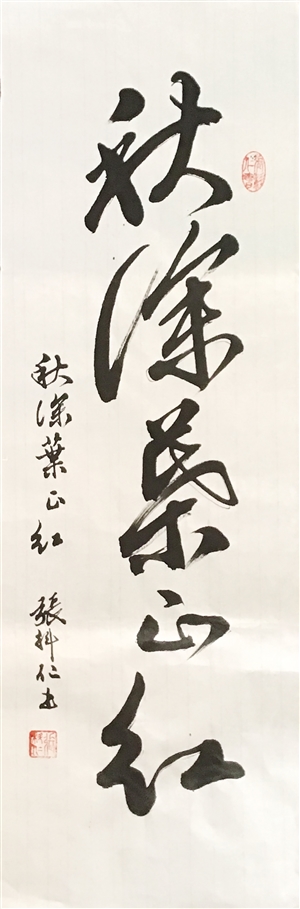 秋深葉正紅
秋深葉正紅 張抖仁书